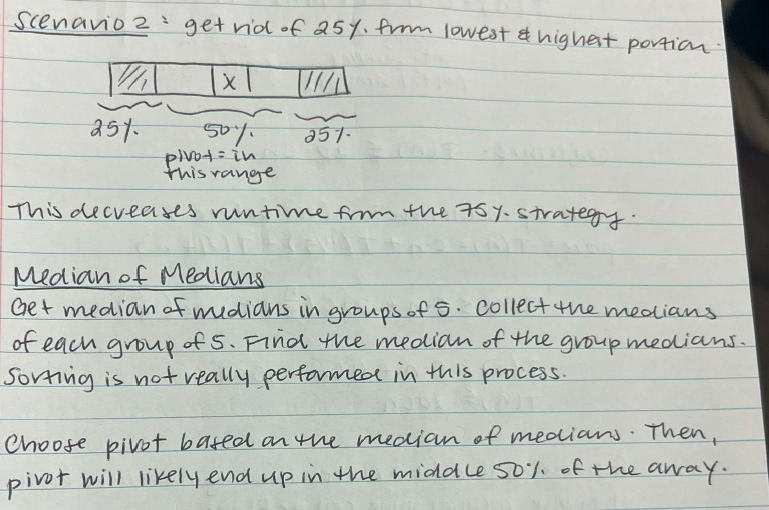 Scenario 2: get rid of 25% from lowest & highest portion.
X
25% 50% 25%
pivot = in
this range
This decreases runtime from the 75% strategy.
Median of Medians
Get median of medians in groups of 5. Collect the medians
of each group of 5. Find the median of the group medians.
Sorting is not really performed in this process.
Choose pivot based on the median of medians. Then,
pivot will likely end up in the middle 50% of the array.